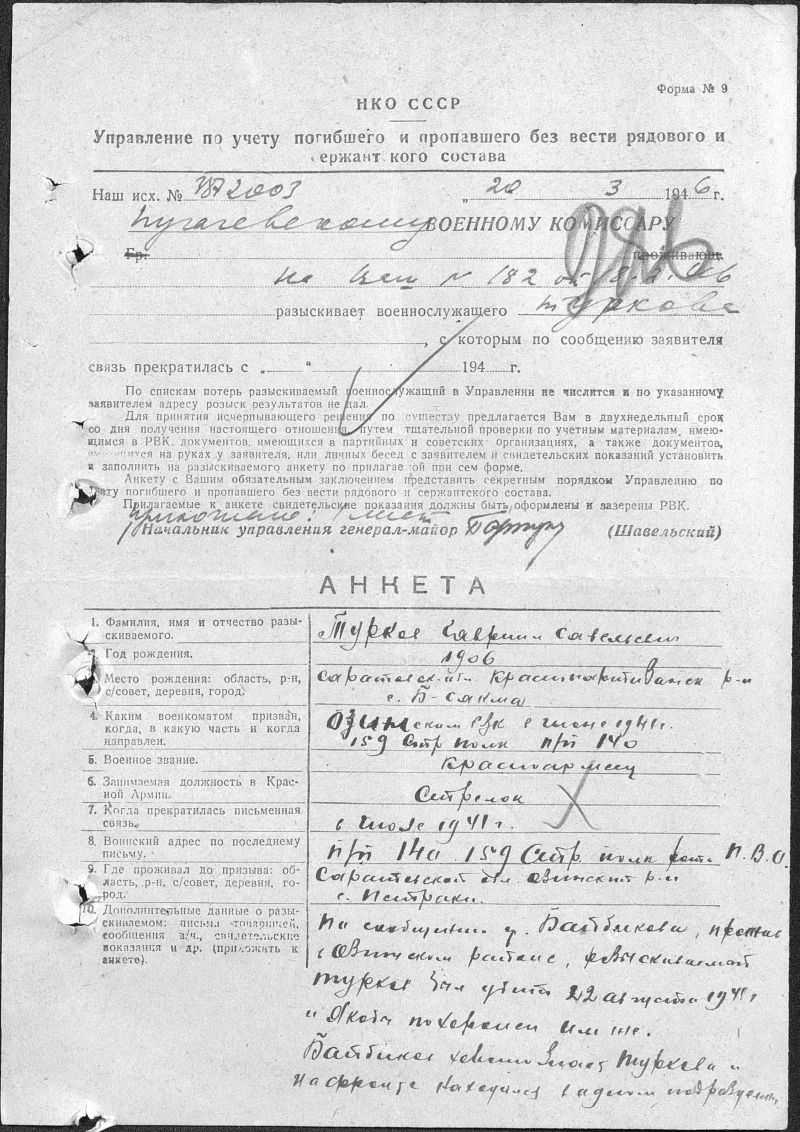 Форма № 9
НКО СССР
Управление по учету погибшего и пропавшего без вести рядового и
сержант кого состава
Наш исх. № 2003 „ 20 3 1946 г.
Пугачевскому ВОЕННОМУ КОМИССАРУ
Гр. проживающ.
На № 182 от
разыскивает военнослужащего Туркова
, с которым по сообщению заявителя
связь прекратилась с „ “ 194 г.
По спискам потерь разыскиваемый военнослужащий в Управлении не числится и по указанному
заявителем адресу розыск результатов не дал.
Для принятия исчерпывающего решения по существу предлагается Вам в двухнедельный срок
со дня получения настоящего отношения, путем тщательной проверки по учетным материалам, имею-
щимся в РВК, документов, имеющихся в партийных и советских организациях, а также документов,
имеющихся на руках у заявителя, или личных бесед с заявителем и свидетельских показаний установить
и заполнить на разыскиваемого анкету по прилагаемой при сем форме.
Анкету с Вашим обязательным заключением представить секретным порядком Управлению по
учету погибшего и пропавшего без вести рядового и сержантского состава.
Прилагаемые к анкете свидетельские показания должны быть оформлены и заверены РВК.
Приложение: лист
Начальник управления генерал-майор (Шавельский)
АНКЕТА
1. Фамилия, имя и отчество разы-
скиваемого.
Турков Гавриил Савельевич
2. Год рождения.
1906
3. Место рождения: область, р-н,
с/совет, деревня, город.
Саратовской обл. Краснопартизанск р-н
с. Б-Сакма
4. Каким военкоматом призван,
когда, в какую часть и когда
направлен.
Озинским РВК в июне 1941 г.
159 Стр полк п/п 140
5. Военное звание.
Красноармеец
6. Занимаемая должность в Крас-
ной Армии.
Стрелок
7. Когда прекратилась письменная
связь.
в июле 1941 г.
8. Воинский адрес по последнему
письму.
п/п 140 159 Стр. полк рота П.В.О.
9. Где проживал до призыва: об-
ласть, р-н, с/совет, деревня, го-
род.
Саратовской обл. Озинский р-н
с. Петраки.
10. Дополнительные данные о разы-
скиваемом: письма товарищей,
сообщения в/ч., свидетельские
показания и др. (приложить к
анкете).
По сообщению гр. Батбикова, прожив
в Озинском районе, разыскиваемый
Турков был убит 22 августа 1941 г
и якобы похоронен им же.
Батбиков хорошо знает Туркова и
на фронте находился в одном подразделен